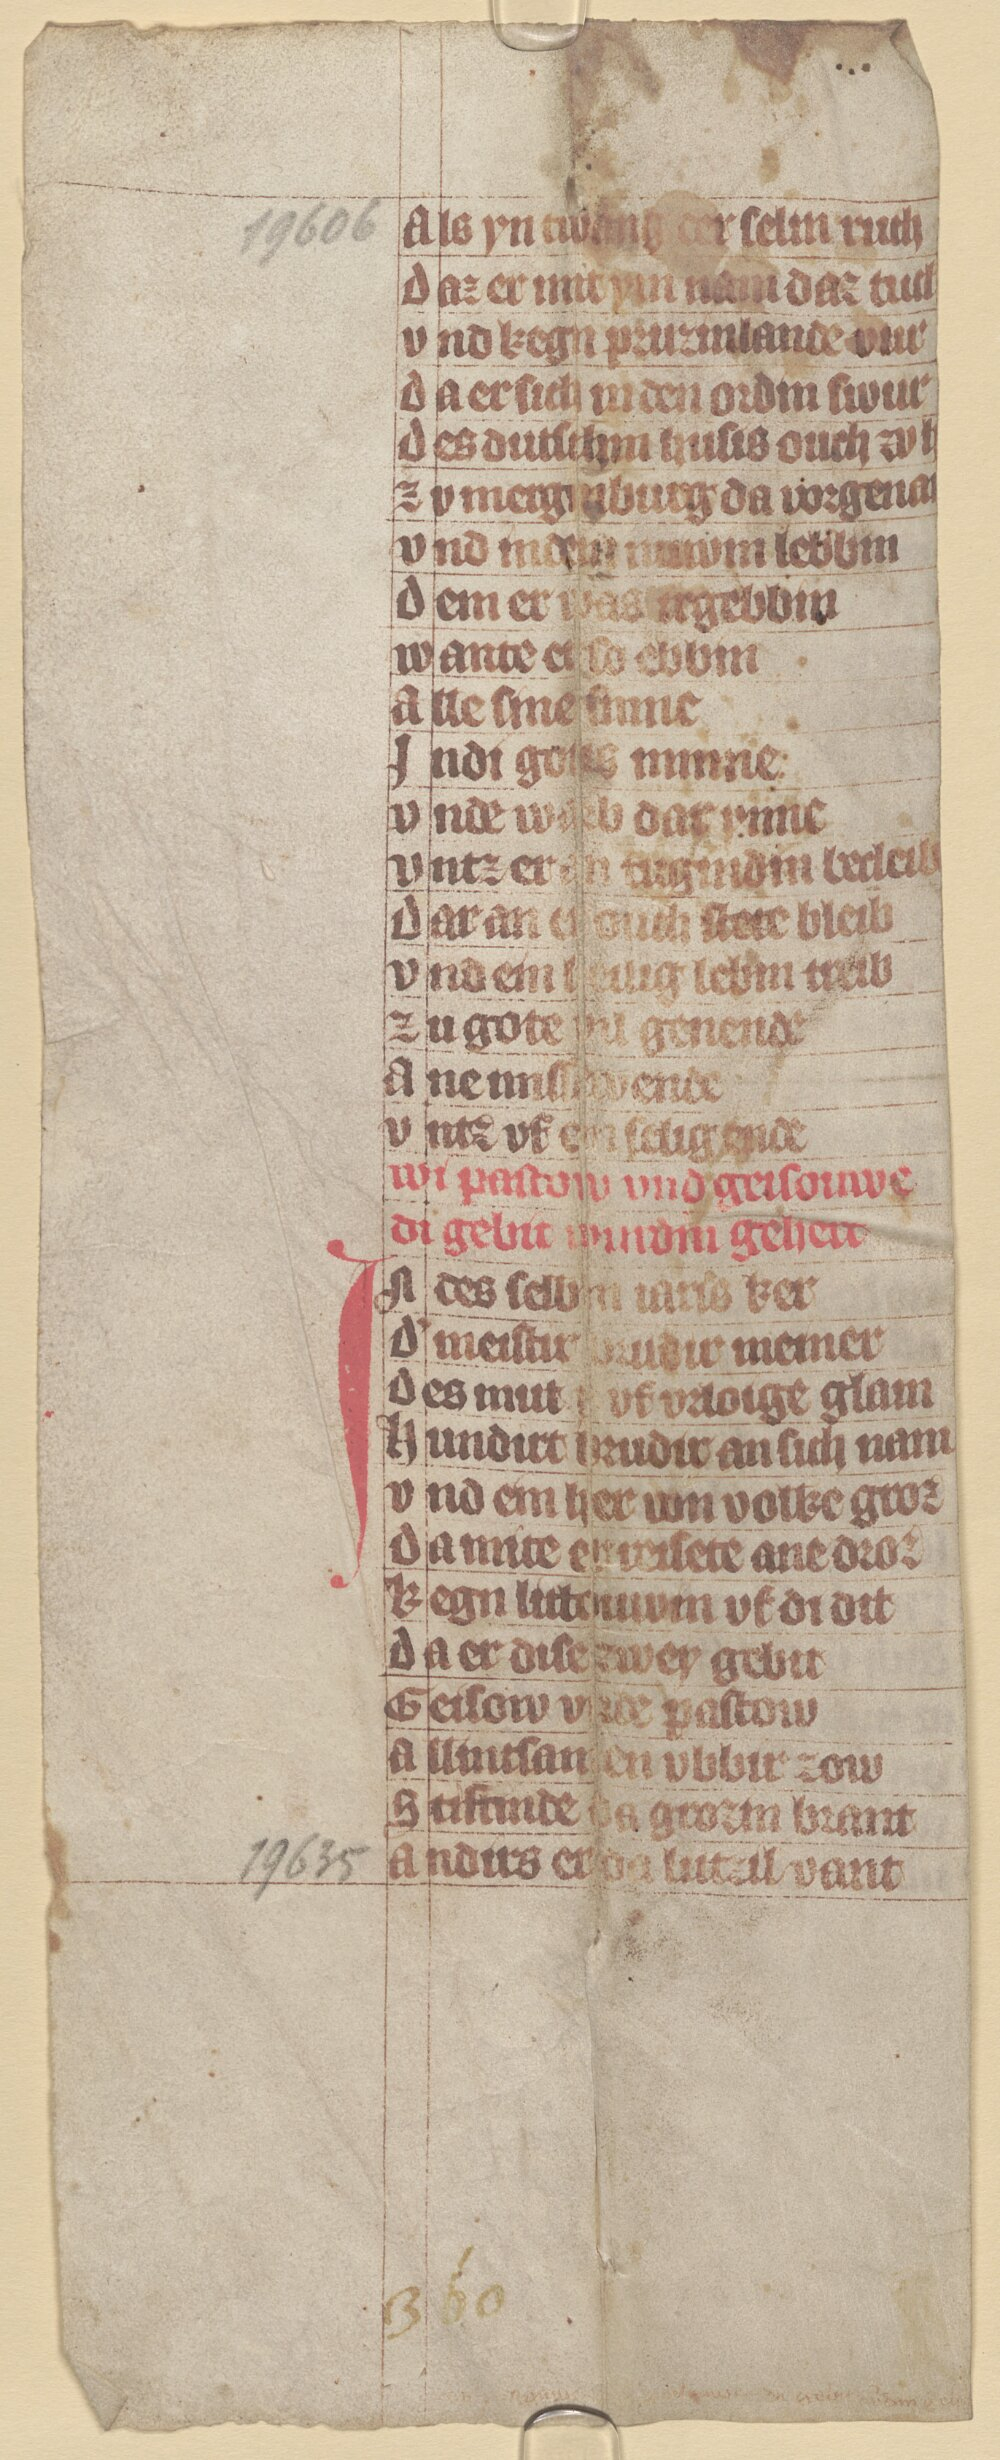 19606 Als yn twang der selin ruch
Daz er mit yin nam daz tuch
vnd kegn pruzinlande vur
Da er sich in den ordin swur
Des dutschin husis ouch zv h
Zv mergenburg da vorgena
vnd in dem nuwin lebbin
Dem er was irgebbin
wante er so ebbin
Alle sine sinne
In di gotis minne
vnde warb dar ynne
vntz er an tugindin becleib
Dar an er ouch stete bleib
vnd ein heilig lebin treib
Zu gote mit genende
Ane missewende
vntz vf ein selig ende
wi pastow vnd geisouwe
di gebit wurdin gehert
IN des selbin iaris ker
D' meistir brudir meiner
Des mut y vf vrloige glam
Hundirt brudir an sich nam
vnd ein her von volke groz
Da mite er reisete ane droz
Kegn littouwin vf di dit
Da er dise zwey gebit
Geisow vnde pastow
Allintsamen vbbir zow
Stiftinde da grozin brant
19635 Andirs er da lutzil vant
B 60